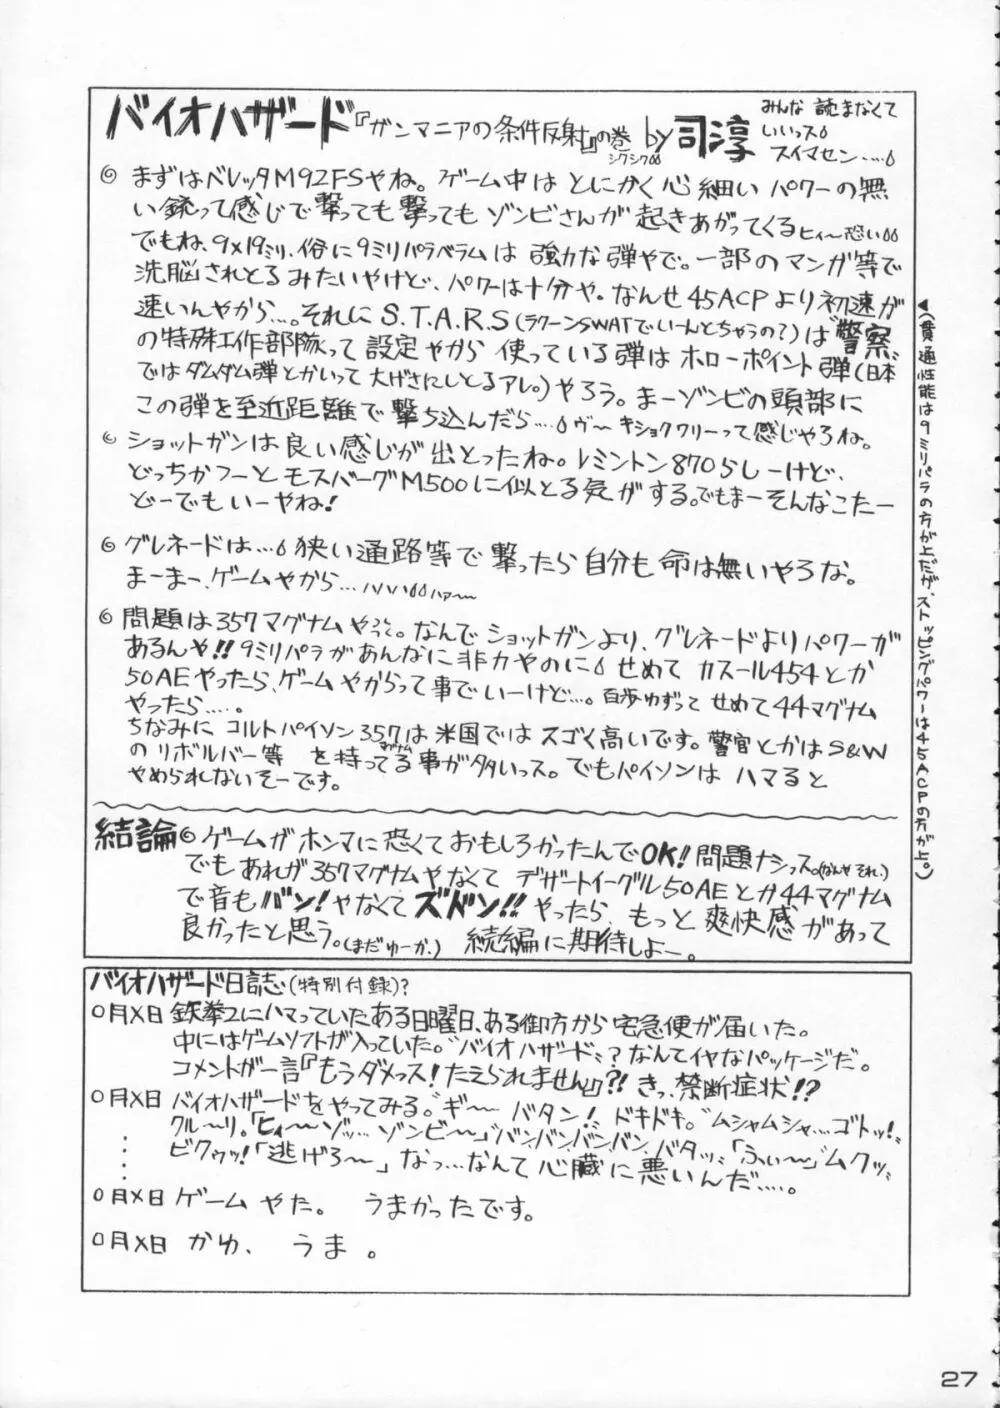 バイオハザード『ガンマニアの条件反射』の巻 by 司淳
シクシク
みんな 読まなくて
いいっス
スイマセン‥‥
◎ まずはベレッタM92FSやね。ゲーム中は とにかく心細い パワーの無
い銃って感じで撃っても撃っても ゾンビさんが 起きあがってくるヒィ〜恐い
でもね、9×19ミリ、俗に9ミリパラベラムは 強力な弾やで。一部のマンガ等で
洗脳されとるみたいやけど、パワーは十分や。なんせ45ACPより初速が
速いんやから…。それにS.T.A.R.S(ラクーンSWATでいーんとちゃうの?)は〝警察〟
の特殊工作部隊って 設定やから 使っている弾はホローポイント弾(日本
ではダムダム弾とかいって大げさにしとるアレ。)やろう。まーゾンビの頭部に
この弾を至近距離で撃ち込んだら‥‥ヴ〜 キショクワリーって感じやろね。
◎ ショットガンは良い感じが出とったね。レミントン870らしーけど、
どっちかつーと モスバーグM500に似とる気がする。でもまーそんなこたー
どーでもいーやね!
◎ グレネードは‥‥狭い通路等で撃ったら自分も命は無いやろな。
まーまー、ゲームやから‥‥ハハハハァ〜
◎ 問題は357マグナムやって。なんでショットガンより、グレネードよりパワーが
あるんや!!9ミリパラがあんなに非力やのに せめて カスール454とか
50AEやったら、ゲームやからって事でいーけど‥‥。百歩ゆずって せめて44マグナム
やったら‥‥。
ちなみに コルトパイソン357は米国では スゴく高いです。警官とかはS&W
の リボルバー等 を持ってる事が多いっス。でもパイソンは ハマると
やめられないそーです。
◀(貫通性能は9ミリパラの方が上だが、ストッピングパワーは45ACPの方が上。)
結論◎ ゲームがホンマに恐くておもしろかったんでOK!問題ナシっス。(なんやそれ。)
でも あれが357マグナムやなくて デザートイーグル50AEとか44マグナム
で音もバン!やなくてズドン!!やったら、もっと爽快感があって
良かったと思う。(まだゆーか。) 続編に期待しよー。
バイオハザード日誌(特別付録)?
〇月X日 鉄拳2にハマっていたある日曜日、ある御方から宅急便が届いた。
中にはゲームソフトが入っていた。〝バイオハザード〟?なんてイヤなパッケージだ。
コメントが一言『もうダメっス!たえられません』?!きっ、禁断症状!?
〇月X日 バイオハザードをやってみる。〝ギ〜 バタン!〟ドキドキ。〝ムシャムシャ…ゴトッ!〟
クル〜リ。「ヒィ〜ゾッ…ゾンビ〜」〝バンバンバンバン、バタッ〟「ふぃ〜」〝ムクッ〟
ビクゥッ!「逃げろ〜」なっ…なんて心臓に悪いんだ‥‥。
〇月X日 ゲーム やた。 うまかったです。
〇月X日 かゆ、 うま 。
27